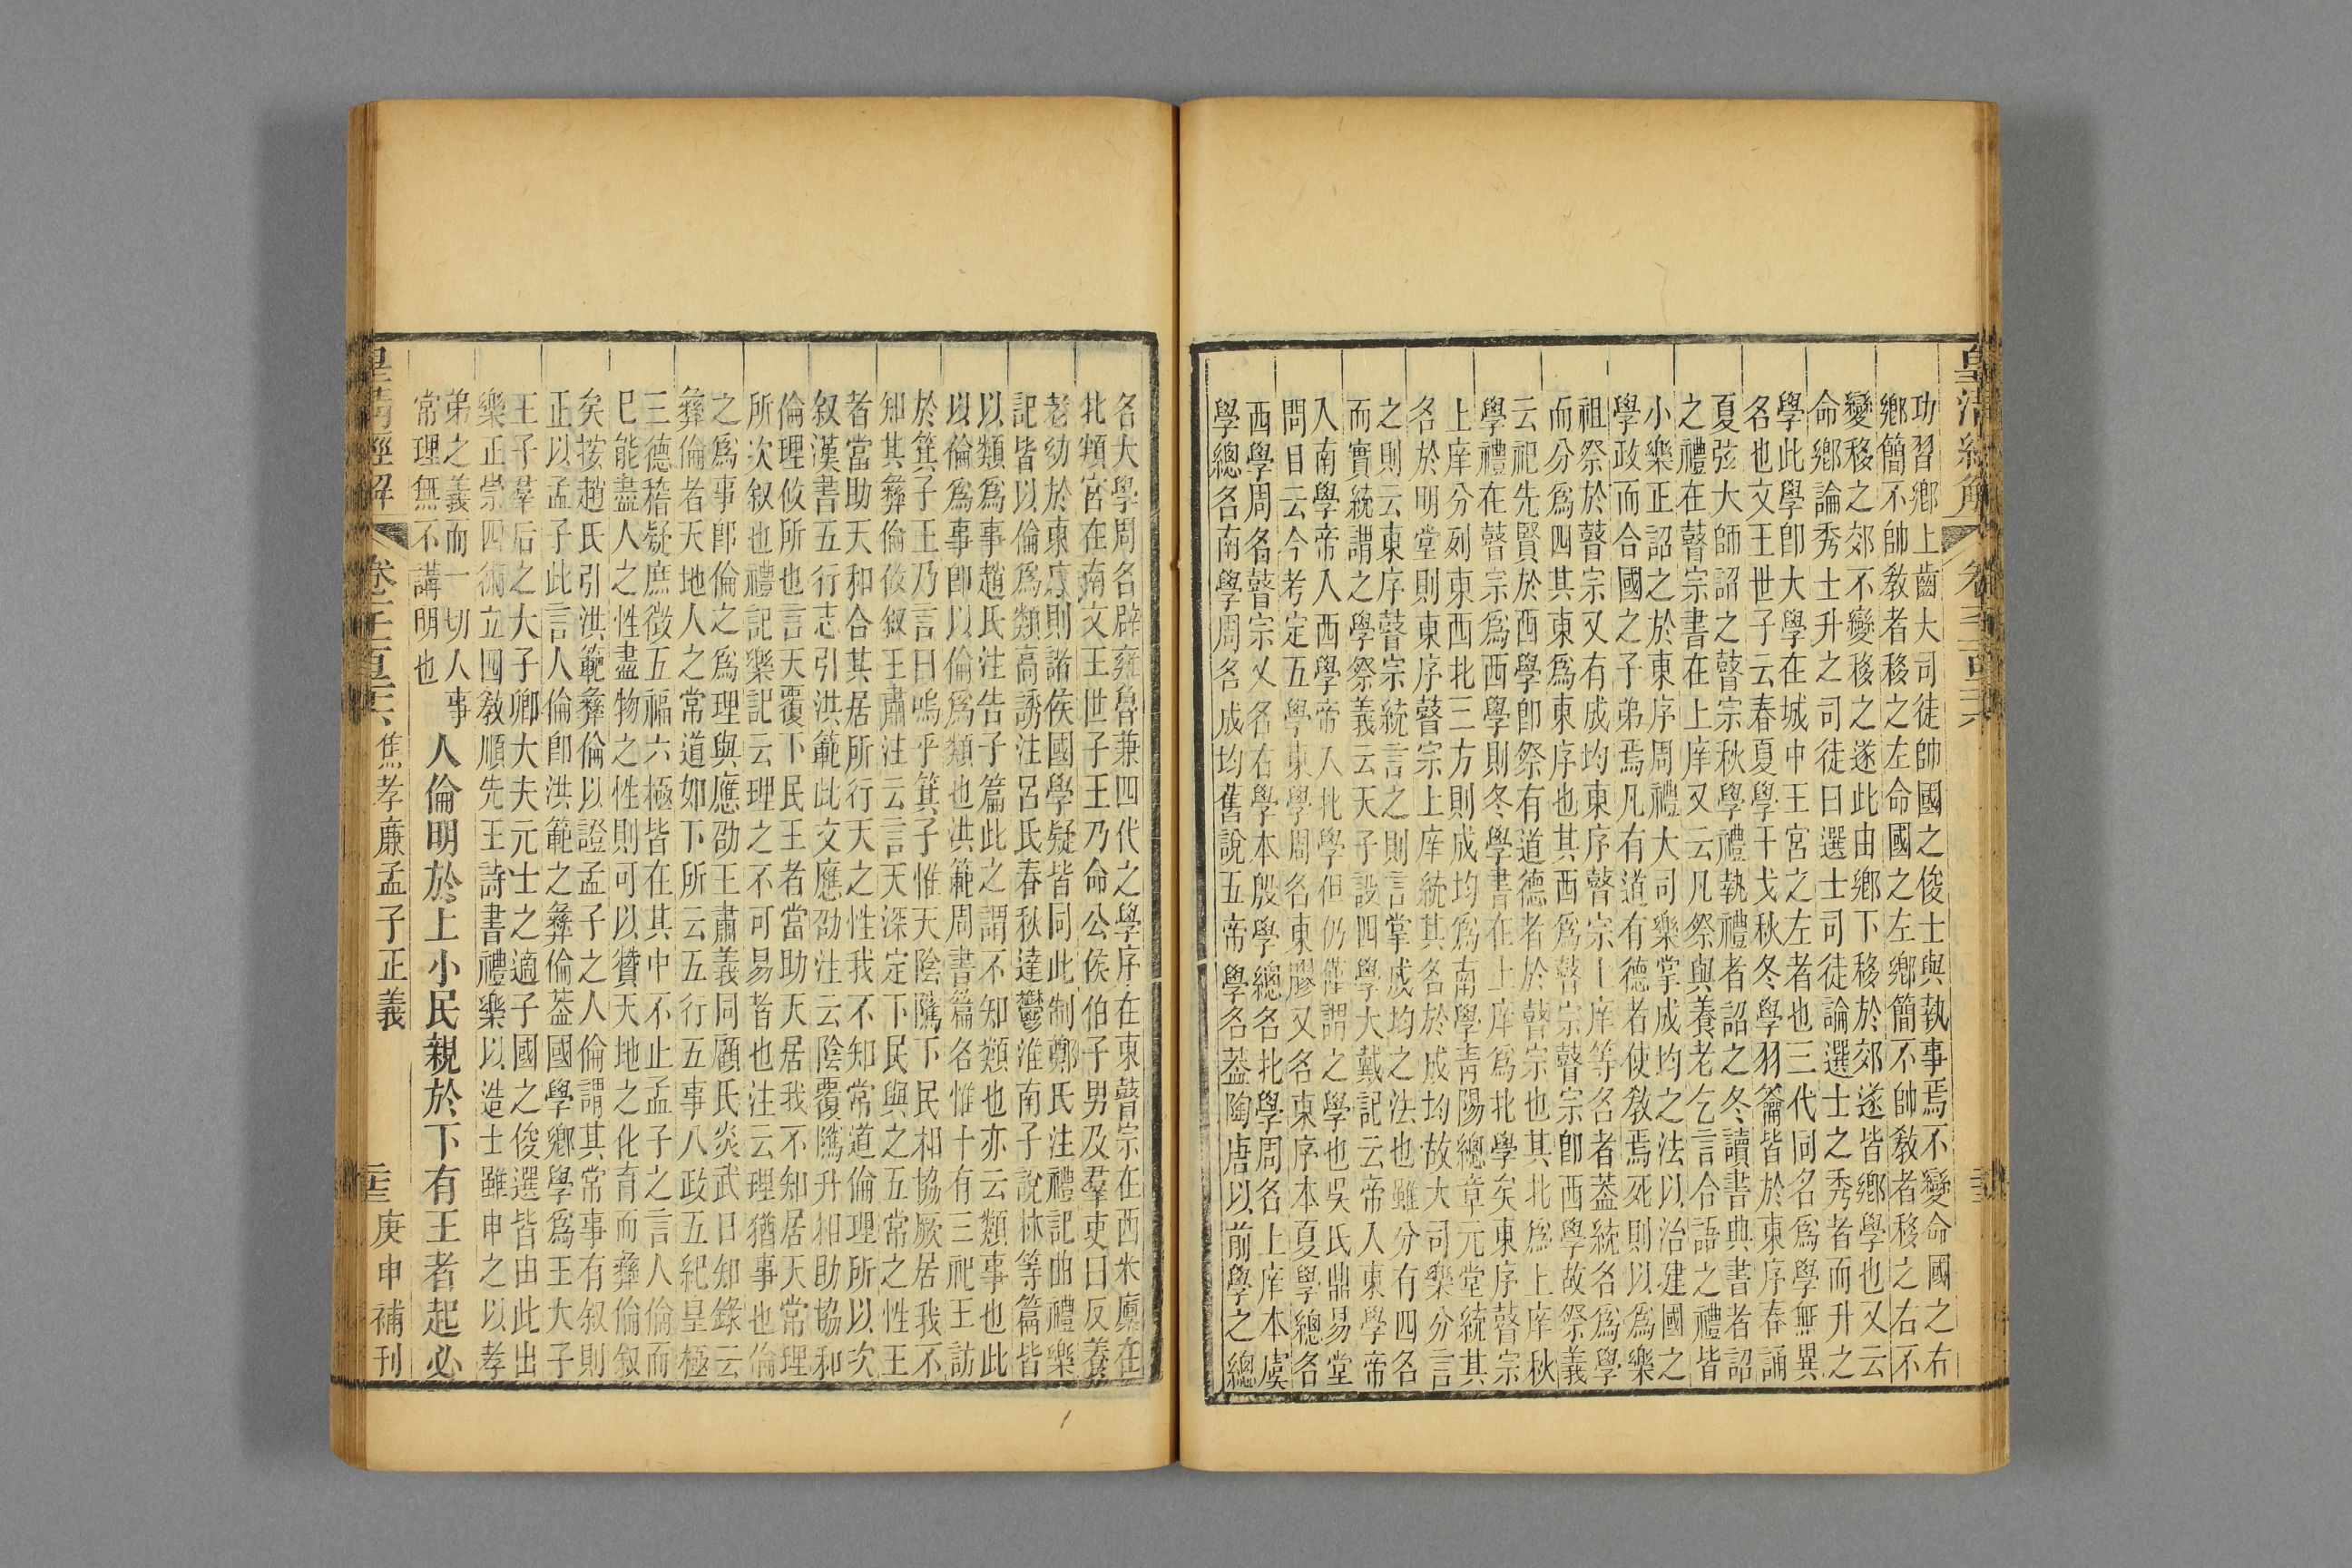 功習鄉上齒大司徒帥國之俊士與執事焉不變命國之右
鄉簡不帥教者移之左命國之左鄉簡不帥教者移之右不
變移之郊不變移之遂此由鄉下移於郊遂皆鄉學也又云
命鄉論秀士升之司徒曰選士司徒論選士之秀者而升之
學此學卽大學在城中王宮之左者也三代同名爲學無異
名也文王世子云春夏學干戈秋冬學羽籥皆於東序春誦
夏弦大師詔之瞽宗秋學禮執禮者詔之冬讀書典書者詔
之禮在瞽宗書在上庠又云凡祭與養老乞言合語之禮皆
小樂正詔之於東序周禮大司樂掌成均之法以治建國之
學政而合國之子弟焉凡有道有德者使教焉死則以爲樂
祖祭於瞽宗又有成均東序瞽宗上庠等名者葢統名爲學
而分爲四其東爲東序也其西爲瞽宗瞽宗卽西學故祭義
云祀先賢於西學卽祭有道德者於瞽宗也其北爲上庠秋
學禮在瞽宗爲西學則冬學書在上庠爲北學矣東序瞽宗
上庠分列東西北三方則成均爲南學靑陽總章元堂統其
名於明堂則東序瞽宗上庠統其名於成均故大司樂分言
之則云東序瞽宗統言之則言掌成均之法也雖分有四名
而實統謂之學祭義云天子設四學大戴記云帝入東學帝
入南學帝入西學帝入北學但仍僅謂之學也吳氏鼎易堂
問目云今考定五學東學周名東膠又名東序本夏學總名
西學周名瞽宗又名右學本殷學總名北學周名上庠本虞
學總名南學周名成均舊說五帝學名葢陶唐以前學之總
皇清經解
卷三百三六
三
名大學周名辟雍魯兼四代之學序在東瞽宗在西米廩在
北頖宮在南文王世子王乃命公侯伯子男及羣吏曰反養
老幼於東序則諸侯國學疑皆同此制鄭氏注禮記曲禮樂
記皆以倫爲類高誘注呂氏春秋達鬱淮南子說林等篇皆
以類爲事趙氏注告子篇此之謂不知類也亦云類事也此
以倫爲事卽以倫爲類也洪範周書篇名惟十有三祀王訪
於箕子王乃言曰嗚乎箕子惟天陰隲下民相協厥居我不
知其彝倫攸叙王肅注云言天深定下民與之五常之性王
者當助天和合其居所行天之性我不知常道倫理所以次
叙漢書五行志引洪範此文應劭注云陰覆隲升相助協和
倫理攸所也言天覆下民王者當助天居我不知居天常理
所次叙也禮記樂記云理之不可易者也注云理猶事也倫
之爲事卽倫之爲理與應劭王肅義同顧氏炎武日知錄云
彝倫者天地人之常道如下所云五行五事八政五紀皇極
三德稽疑庶徵五福六極皆在其中不止孟子之言人倫而
已能盡人之性盡物之性則可以贊天地之化育而彝倫叙
矣按趙氏引洪範彝倫以證孟子之人倫謂其常事有叙則
正以孟子此言人倫卽洪範之彝倫葢國學鄉學爲王大子
王子羣后之大子卿大夫元士之適子國之俊選皆由此出
樂正崇四術立四教順先王詩書禮樂以造士雖申之以孝
弟之義而一切人事
常理無不講明也
人倫明於上小民親於下有王者起必
皇淸經解
卷三百三六
焦孝廉孟子正義
三
庚申補刊